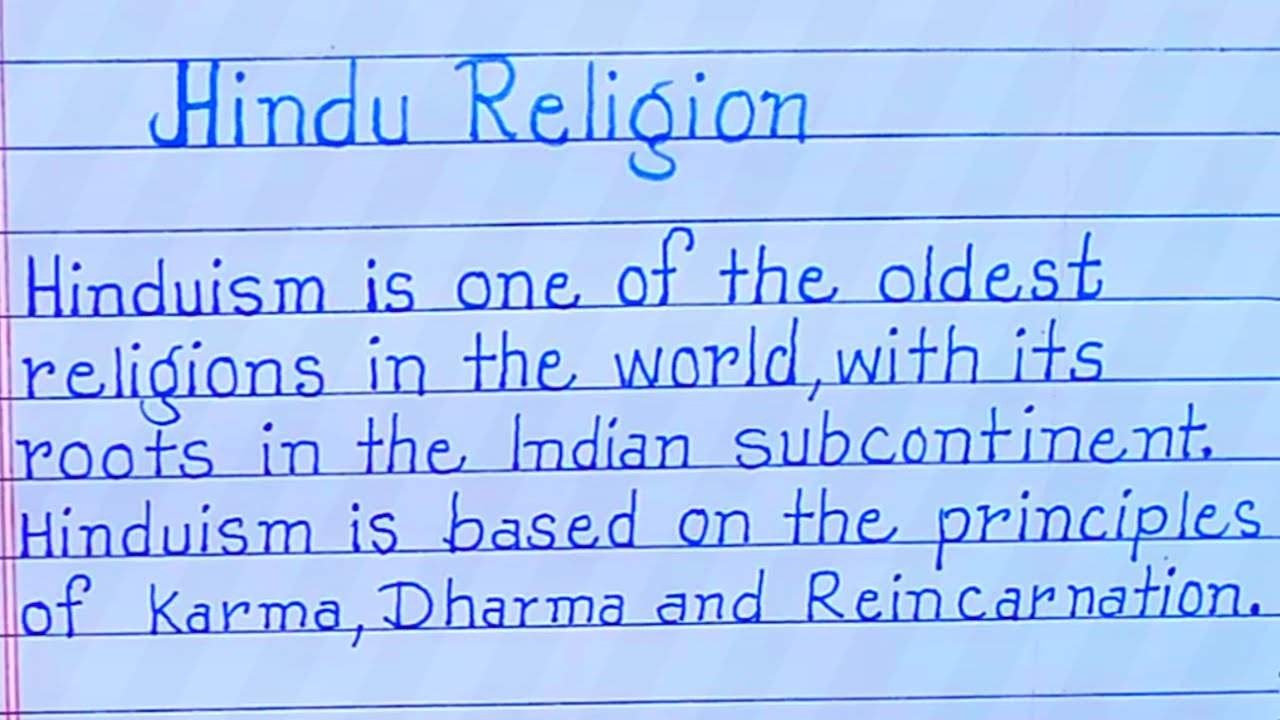 Hindu Religion
Hinduism is one of the oldest
religions in the world, with its
roots in the Indian subcontinent.
Hinduism is based on the principles
of Karma, Dharma and Reincarnation.